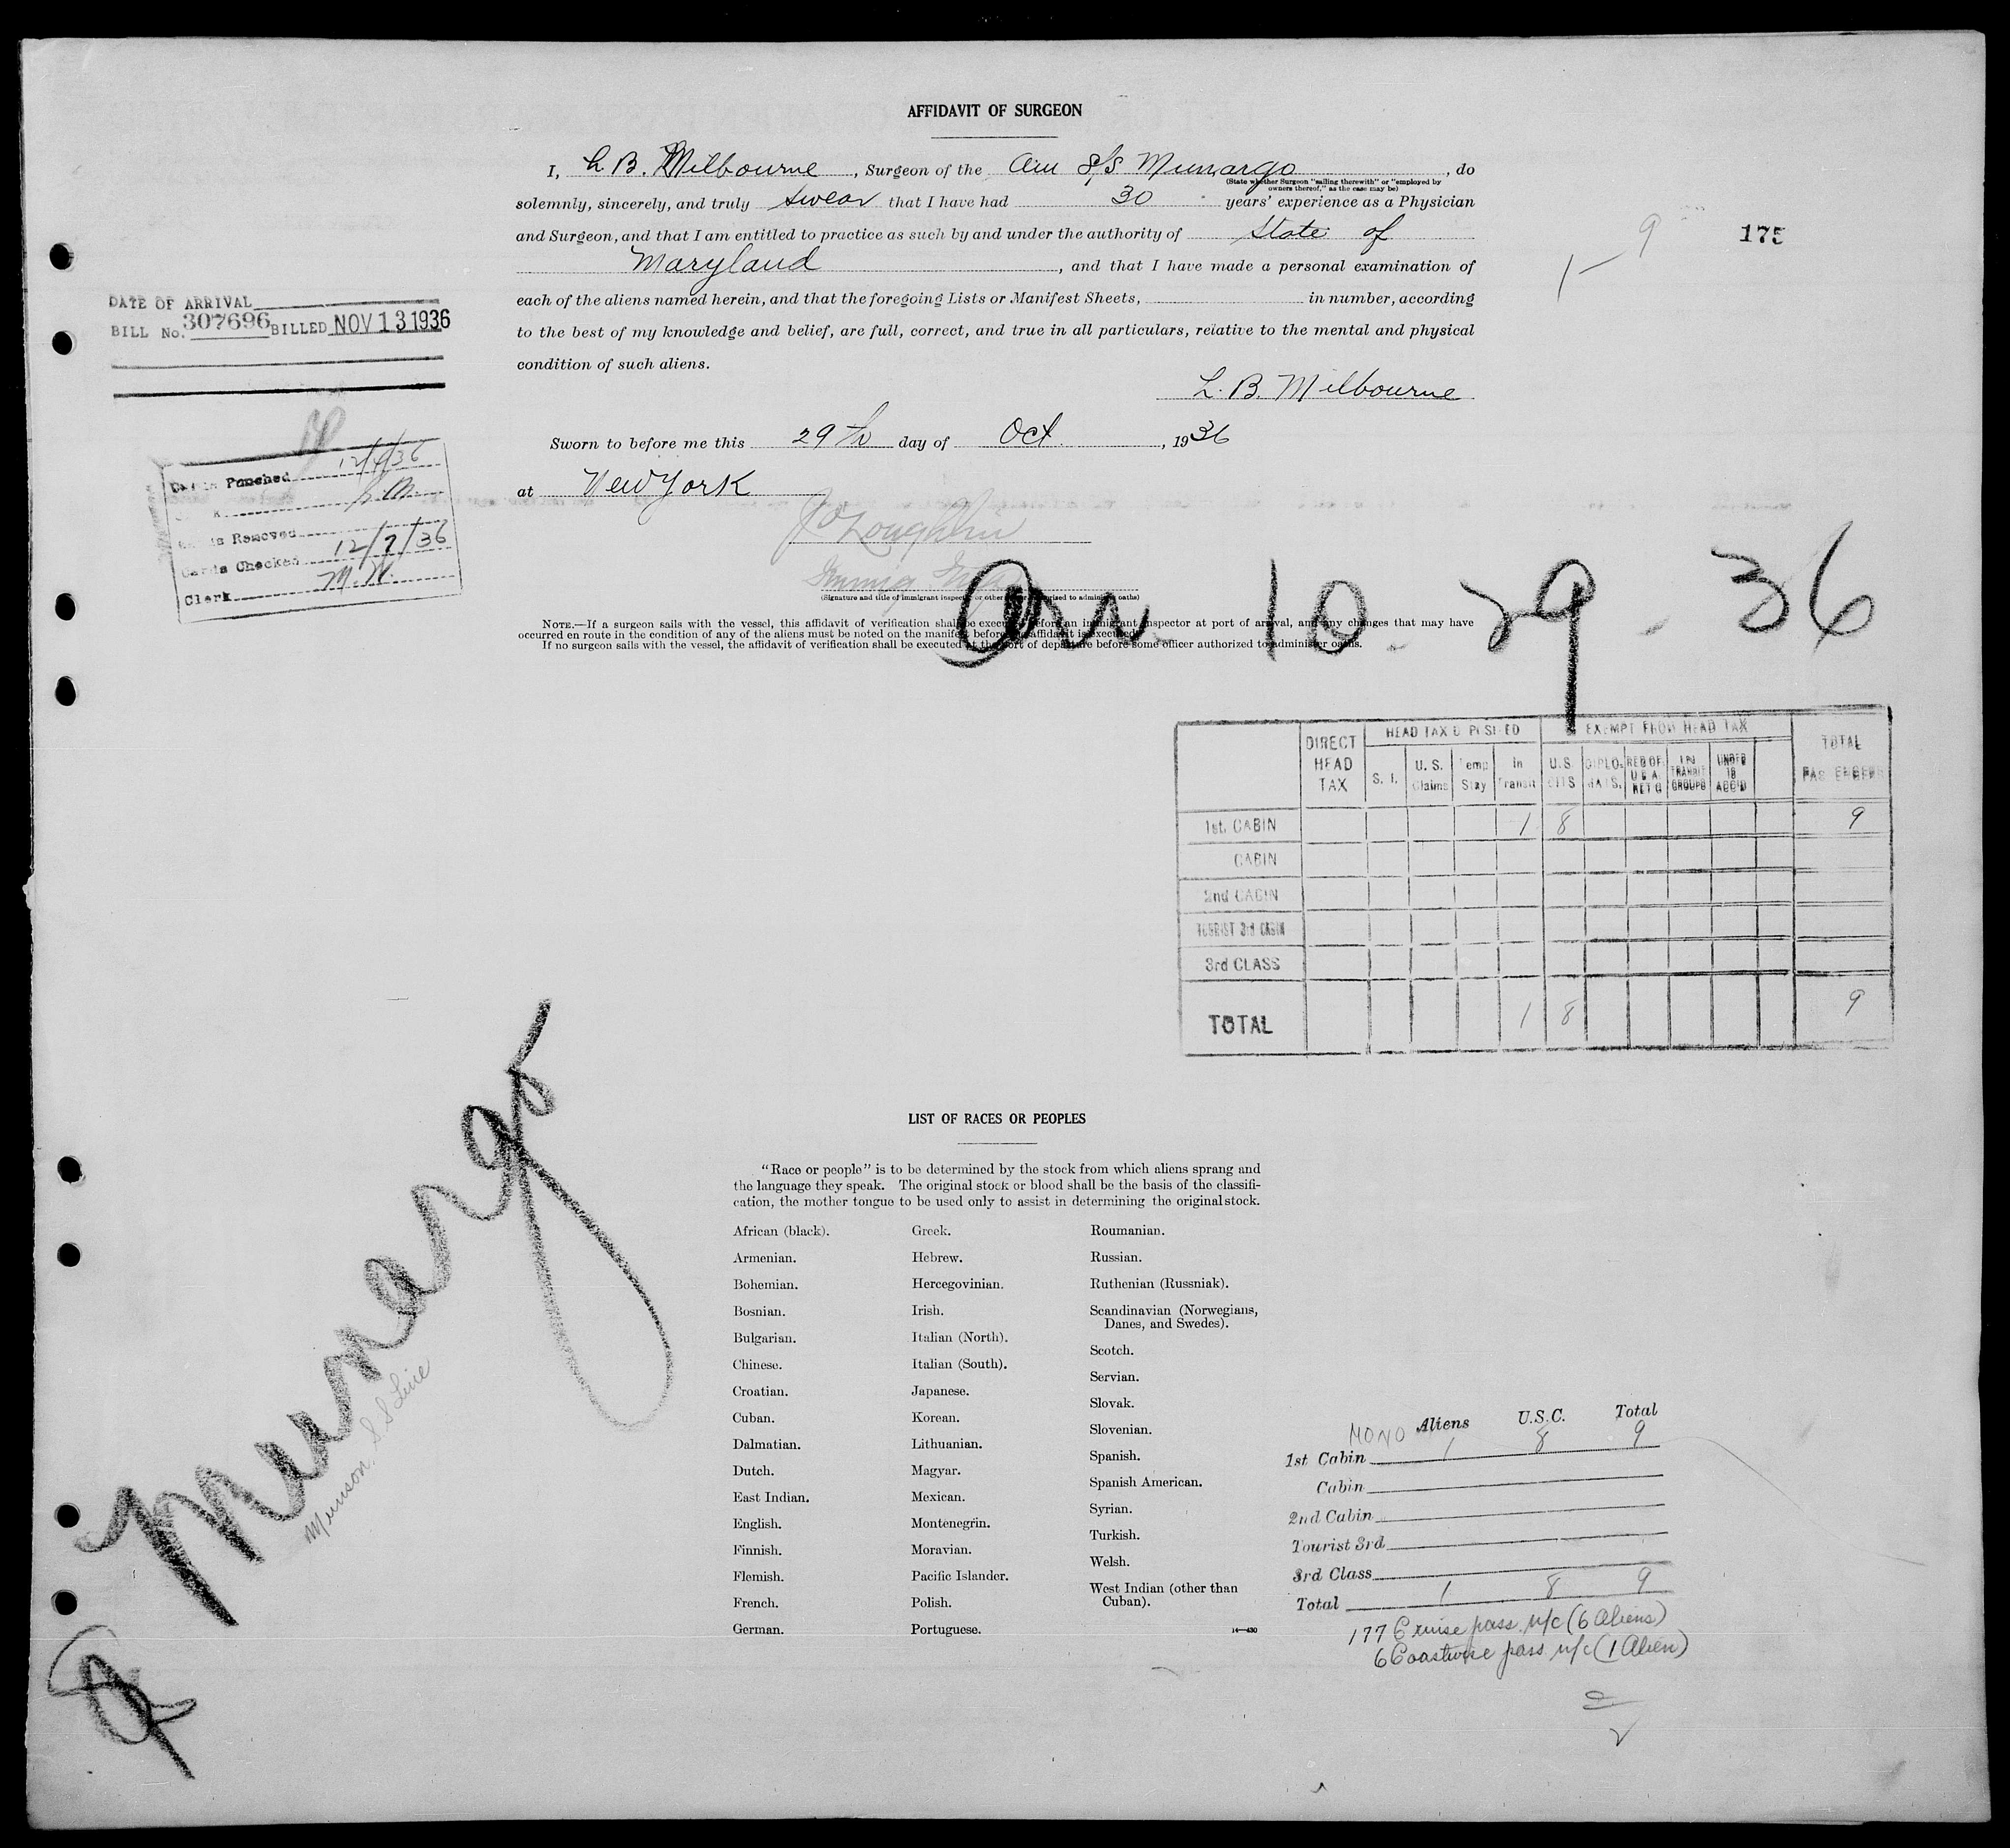 AFFIDAVIT OF SURGEON
I, L. B. Milbourne, Surgeon of the Am S/S Munargo, do
(State whether Surgeon "sailing therewith" or "employed by
owners thereof," as the case may be)
solemnly, sincerely, and truly swear that I have had 30 years' experience as a Physician
and Surgeon, and that I am entitled to practice as such by and under the authority of State of
Maryland, and that I have made a personal examination of
each of the aliens named herein, and that the foregoing Lists or Manifest Sheets, in number, according
to the best of my knowledge and belief, are full, correct, and true in all particulars, relative to the mental and physical
condition of such aliens.
L. B. Milbourne
Sworn to before me this 29th day of Oct, 1936
at New York
J O'Loughlin
(Signature and title of immigrant inspector or other officer authorized to administer oaths)
NOTE.—If a surgeon sails with the vessel, this affidavit of verification shall be executed before an immigrant inspector at port of arrival, and any changes that may have
occurred en route in the condition of any of the aliens must be noted on the manifest before the affidavit is executed.
If no surgeon sails with the vessel, the affidavit of verification shall be executed at the port of departure before some officer authorized to administer oaths.
9
175
1 —
DATE OF ARRIVAL
BILL No. 307696 BILLED NOV 13 1936
Cards Punched 12/4/36
Cards Removed
Cards Checked 12/7/36
Clerk M.W.
Arr. 10.29.36
DIRECT HEAD TAX
HEAD TAX DEPOSITED
EXEMPT FROM HEAD TAX
TOTAL PASSENGERS
S. I. U. S. Claims Temp Stay In Transit U.S. CITS DIPLOMATS. RES OF U.S.A. RET'G IN TRANSIT GROUPS UNDER 16 ACC'D
1st. CABIN 1 8 9
CABIN
2nd CABIN
TOURIST 3rd CABIN
3rd CLASS
TOTAL 1 8 9
Munargo
Munson S S Line
LIST OF RACES OR PEOPLES
"Race or people" is to be determined by the stock from which aliens sprang and
the language they speak. The original stock or blood shall be the basis of the classifi-
cation, the mother tongue to be used only to assist in determining the original stock.
African (black).
Armenian.
Bohemian.
Bosnian.
Bulgarian.
Chinese.
Croatian.
Cuban.
Dalmatian.
Dutch.
East Indian.
English.
Finnish.
Flemish.
French.
German.
Greek.
Hebrew.
Hercegovinian.
Irish.
Italian (North).
Italian (South).
Japanese.
Korean.
Lithuanian.
Magyar.
Mexican.
Montenegrin.
Moravian.
Pacific Islander.
Polish.
Portuguese.
Roumanian.
Russian.
Ruthenian (Russniak).
Scandinavian (Norwegians,
Danes, and Swedes).
Scotch.
Servian.
Slovak.
Slovenian.
Spanish.
Spanish American.
Syrian.
Turkish.
Welsh.
West Indian (other than
Cuban).
14—430
Aliens U.S.C. Total
1st Cabin 1 8 9
Cabin
2nd Cabin
Tourist 3rd
3rd Class
Total 1 8 9
177 Cruise pass. n/c (6 Aliens)
6 Coastwise pass n/c (1 Alien)